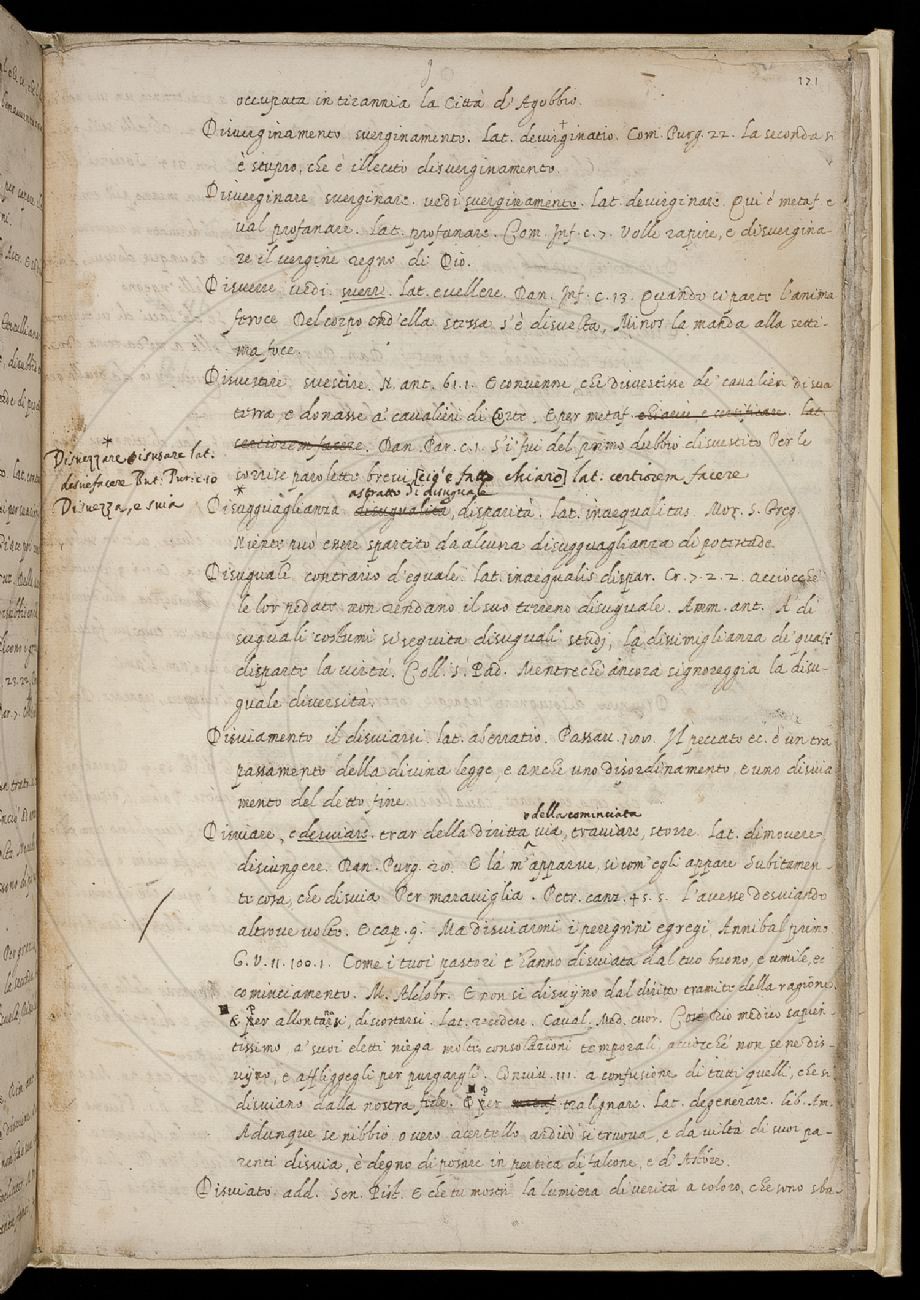 121
occupata in tirannia la Città d'Agobbio.
Disverginamento sverginamento. Lat. devirginatio. Com. Purg. 22. La seconda si
è stupro, che è illecito disverginamento.
Disverginare sverginare. vedi sverginamento. Lat. devirginare. Qui è metaf. e
val profanare. Lat. profanare. Com. Inf. c. 7. Volle rapire, e disvergina-
re il vergine regno di Dio.
Disverre vedi sverre. Lat. evellere. Dan. Inf. c. 13. Quando si parte l'anima
feroce Del corpo ond'ella stessa s'è disvelta, Minos la manda alla setti-
ma foce.
Disvestire svestire. N. ant. 61.1. E convenne, che disvestisse de' cavalieri di sua
terra e donasse a' cavalieri di Corte. E per metaf. chiarir e certificare. Lat.
certiorem facere. Dan. Par. c. 1. S'i' fui del primo dubbio disvestito Per le
corrise parolette brevi [cio è fatto chiaro] lat. certiorem facere
* Disvezzare disusare lat.
desuefacere But. Pur. c. 10
Disvezza, e svia
* astratto di disuguale
Disugguaglianza disugualità, disparità. Lat. inaequalitas. Mor. S. Greg.
Niente può essere spartito da alcuna disugguaglianza di potestade.
Disuguale contrario d'eguale. Lat. inaequalis dispar. Cr. 7. 2. 2. acciocchè
le lor pedate non rendano il suo terreno disuguale. Amm. ant. A' di
suguali costumi si seguita disuguali studj, la disimiglianza de' quali
disparte la virtù. Coll. S. Pad. Mentrechè ancora signoreggia la disu-
guale diversità.
Disviamento il disviarsi. Lat. aberratio. Passav. Il peccato ec. è un tra
passamento della divina legge, e anche uno disordinamento, e uno disvia
mento del detto fine
e della cominciata
Disviare, e desviare. trar della diritta via, traviare, storre. Lat. dimovere,
disiungere. Dan. Purg. 20. E là m'apparve, sì com'egli appare Subitamen-
te cosa, che disvia Per maraviglia. Petr. canz. 45. 5. L'avesse desviando
altrove volto. E cap. 9. Ma disviarmi i peregrini egregi, Annibal primo
G. V. 11. 100. 1. Come i tuoi pastori t'hanno disviata dal tuo buono, e umile, ec
cominciamento. M. Aldobr. E non si disvijno dal diritto tramite della ragione.
E per allontanarsi, discostarsi. Lat. recedere. Caval. Med. cuor. Così Dio medico sapien-
tissimo, a' suoi eletti niega molte consolazioni temporali, acciocchè non se ne dis-
vijno, e affliggegli per purgargli. Conviv. 111. a confusione di tutti quelli, che si
disviano dalla nostra fede. E per metaf tralignare. Lat. degenerare. lib. Am.
Adunque se nibbio, o vero acertello ardito si truova, e da viltà di suoi pa-
renti disvia, è degno di posare in pertica di falcone, e d'Astore.
Disviato. add. Sen. Pist. E che tu mostri la lumiera di verità a coloro, che sono sba-